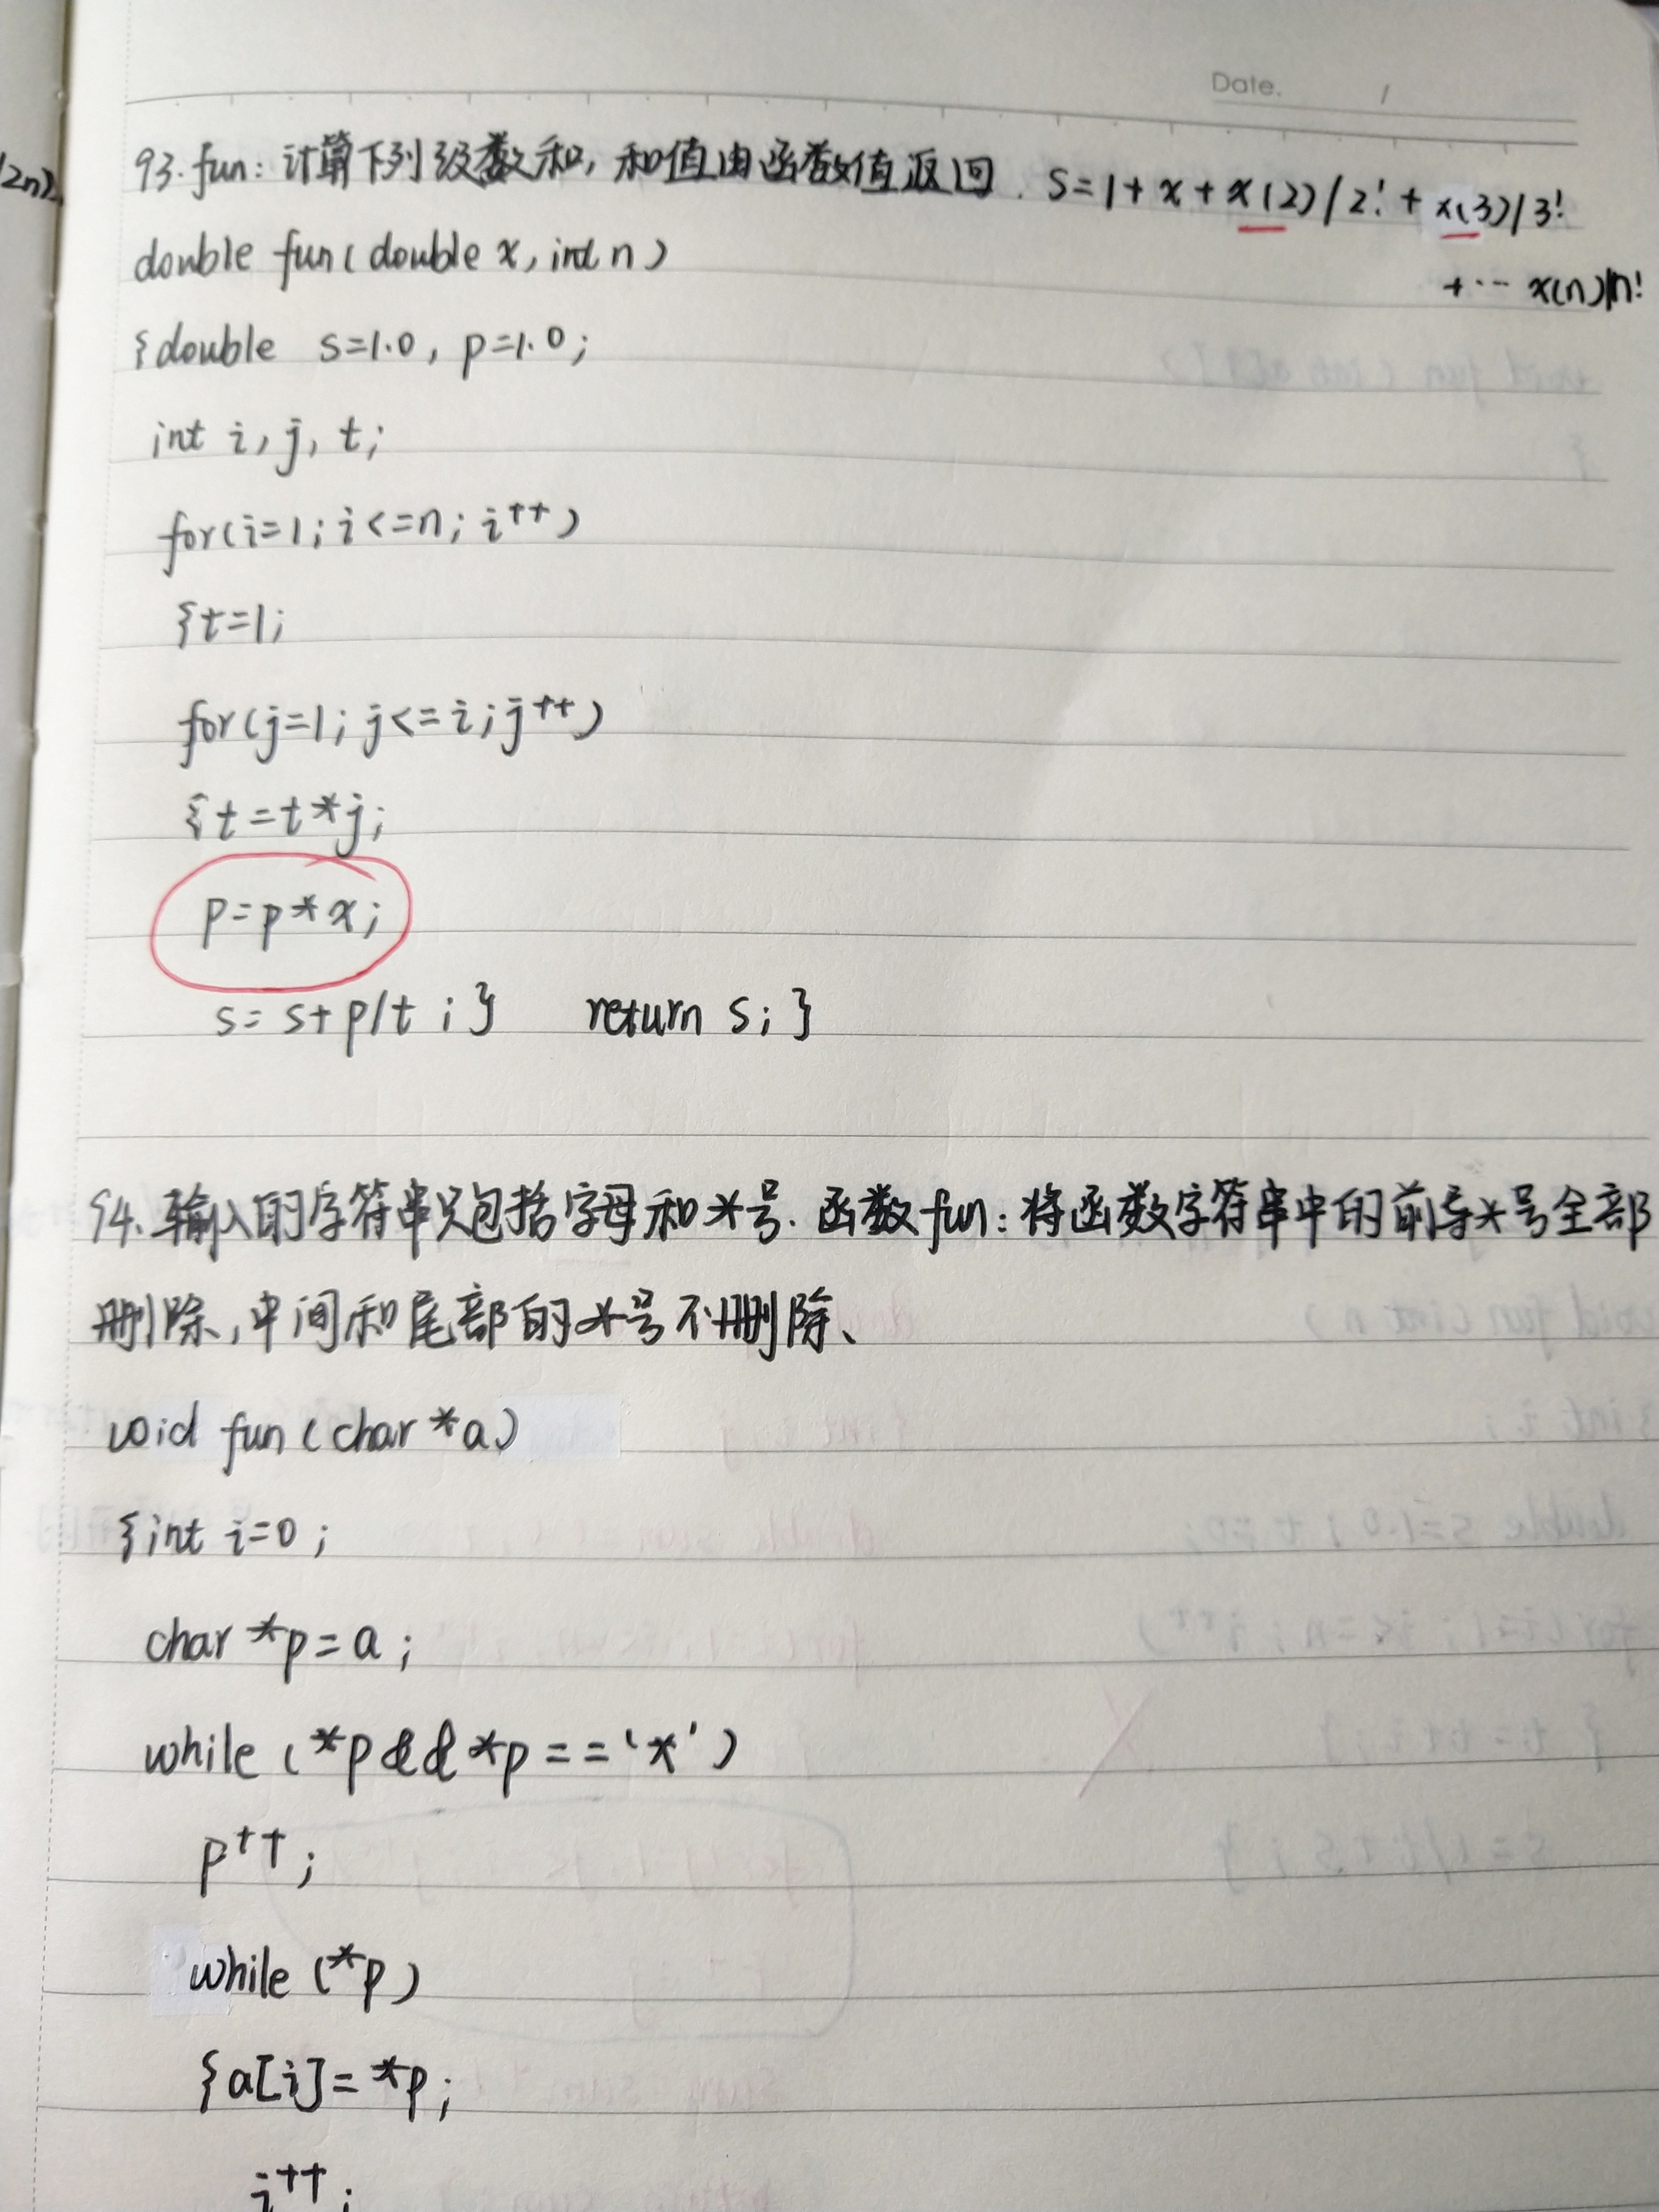 Date. /
2n)
93. fun: 计算下列级数和, 和值由函数值返回. S=1+x+x(2)/2!+x(3)/3!
+… x(n)/n!
double fun(double x, int n)
{double s=1.0, p=1.0;
int i, j, t;
for(i=1; i<=n; i++)
{t=1;
for(j=1; j<=i; j++)
{t=t*j;
p=p*x;
s=s+p/t;} return s;}
94. 输入的字符串只包括字母和*号. 函数fun: 将函数字符串中的前导*号全部
删除, 中间和尾部的*号不删除、
void fun(char *a)
{int i=0;
char *p=a;
while (*p&&*p=='*')
p++;
while (*p)
{a[i]=*p;
i++;